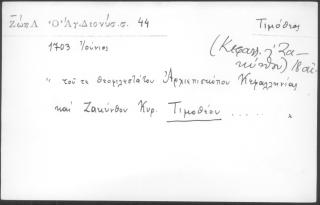 Ζώης Λ. Ὁ Ἁγ. Διονύσ. σ. 44
Τιμόθεος
1703 Ἰούνιος
(Κεφαλ. & Ζακύνθου) 18 αἰ.
" τοῦ τε θεοφιλεστάτου Ἀρχιεπισκόπου Κεφαλληνίας
καὶ Ζακύνθου Κυρ. Τιμοθέου ..... "